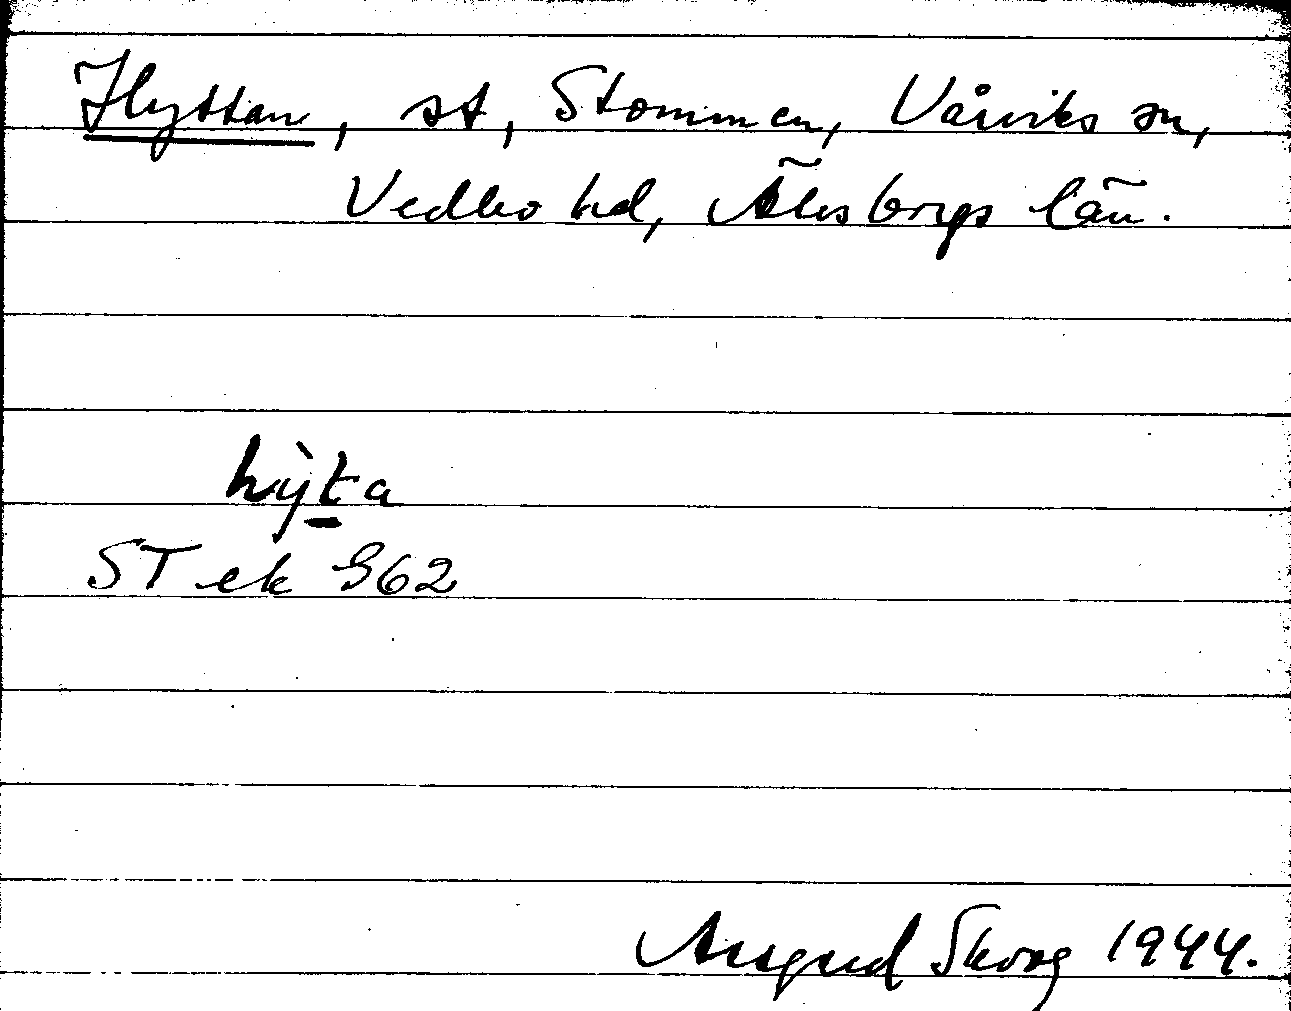 Hyttan, st, Stommen, Vårviks sn,
Vedbo hd, Älvsborgs län.
hy̍ta
ST ek 962
Assgud Skoog 1944.